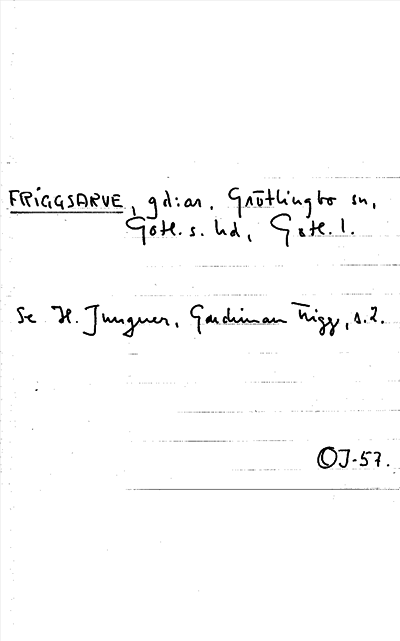 FRIGGSARVE, gd:ar. Grötlingbo sn,
Gotl. s. hd, Gotl. l.
Se H. Jungner, Gudinnan Frigg, s. 2.
OJ-57.